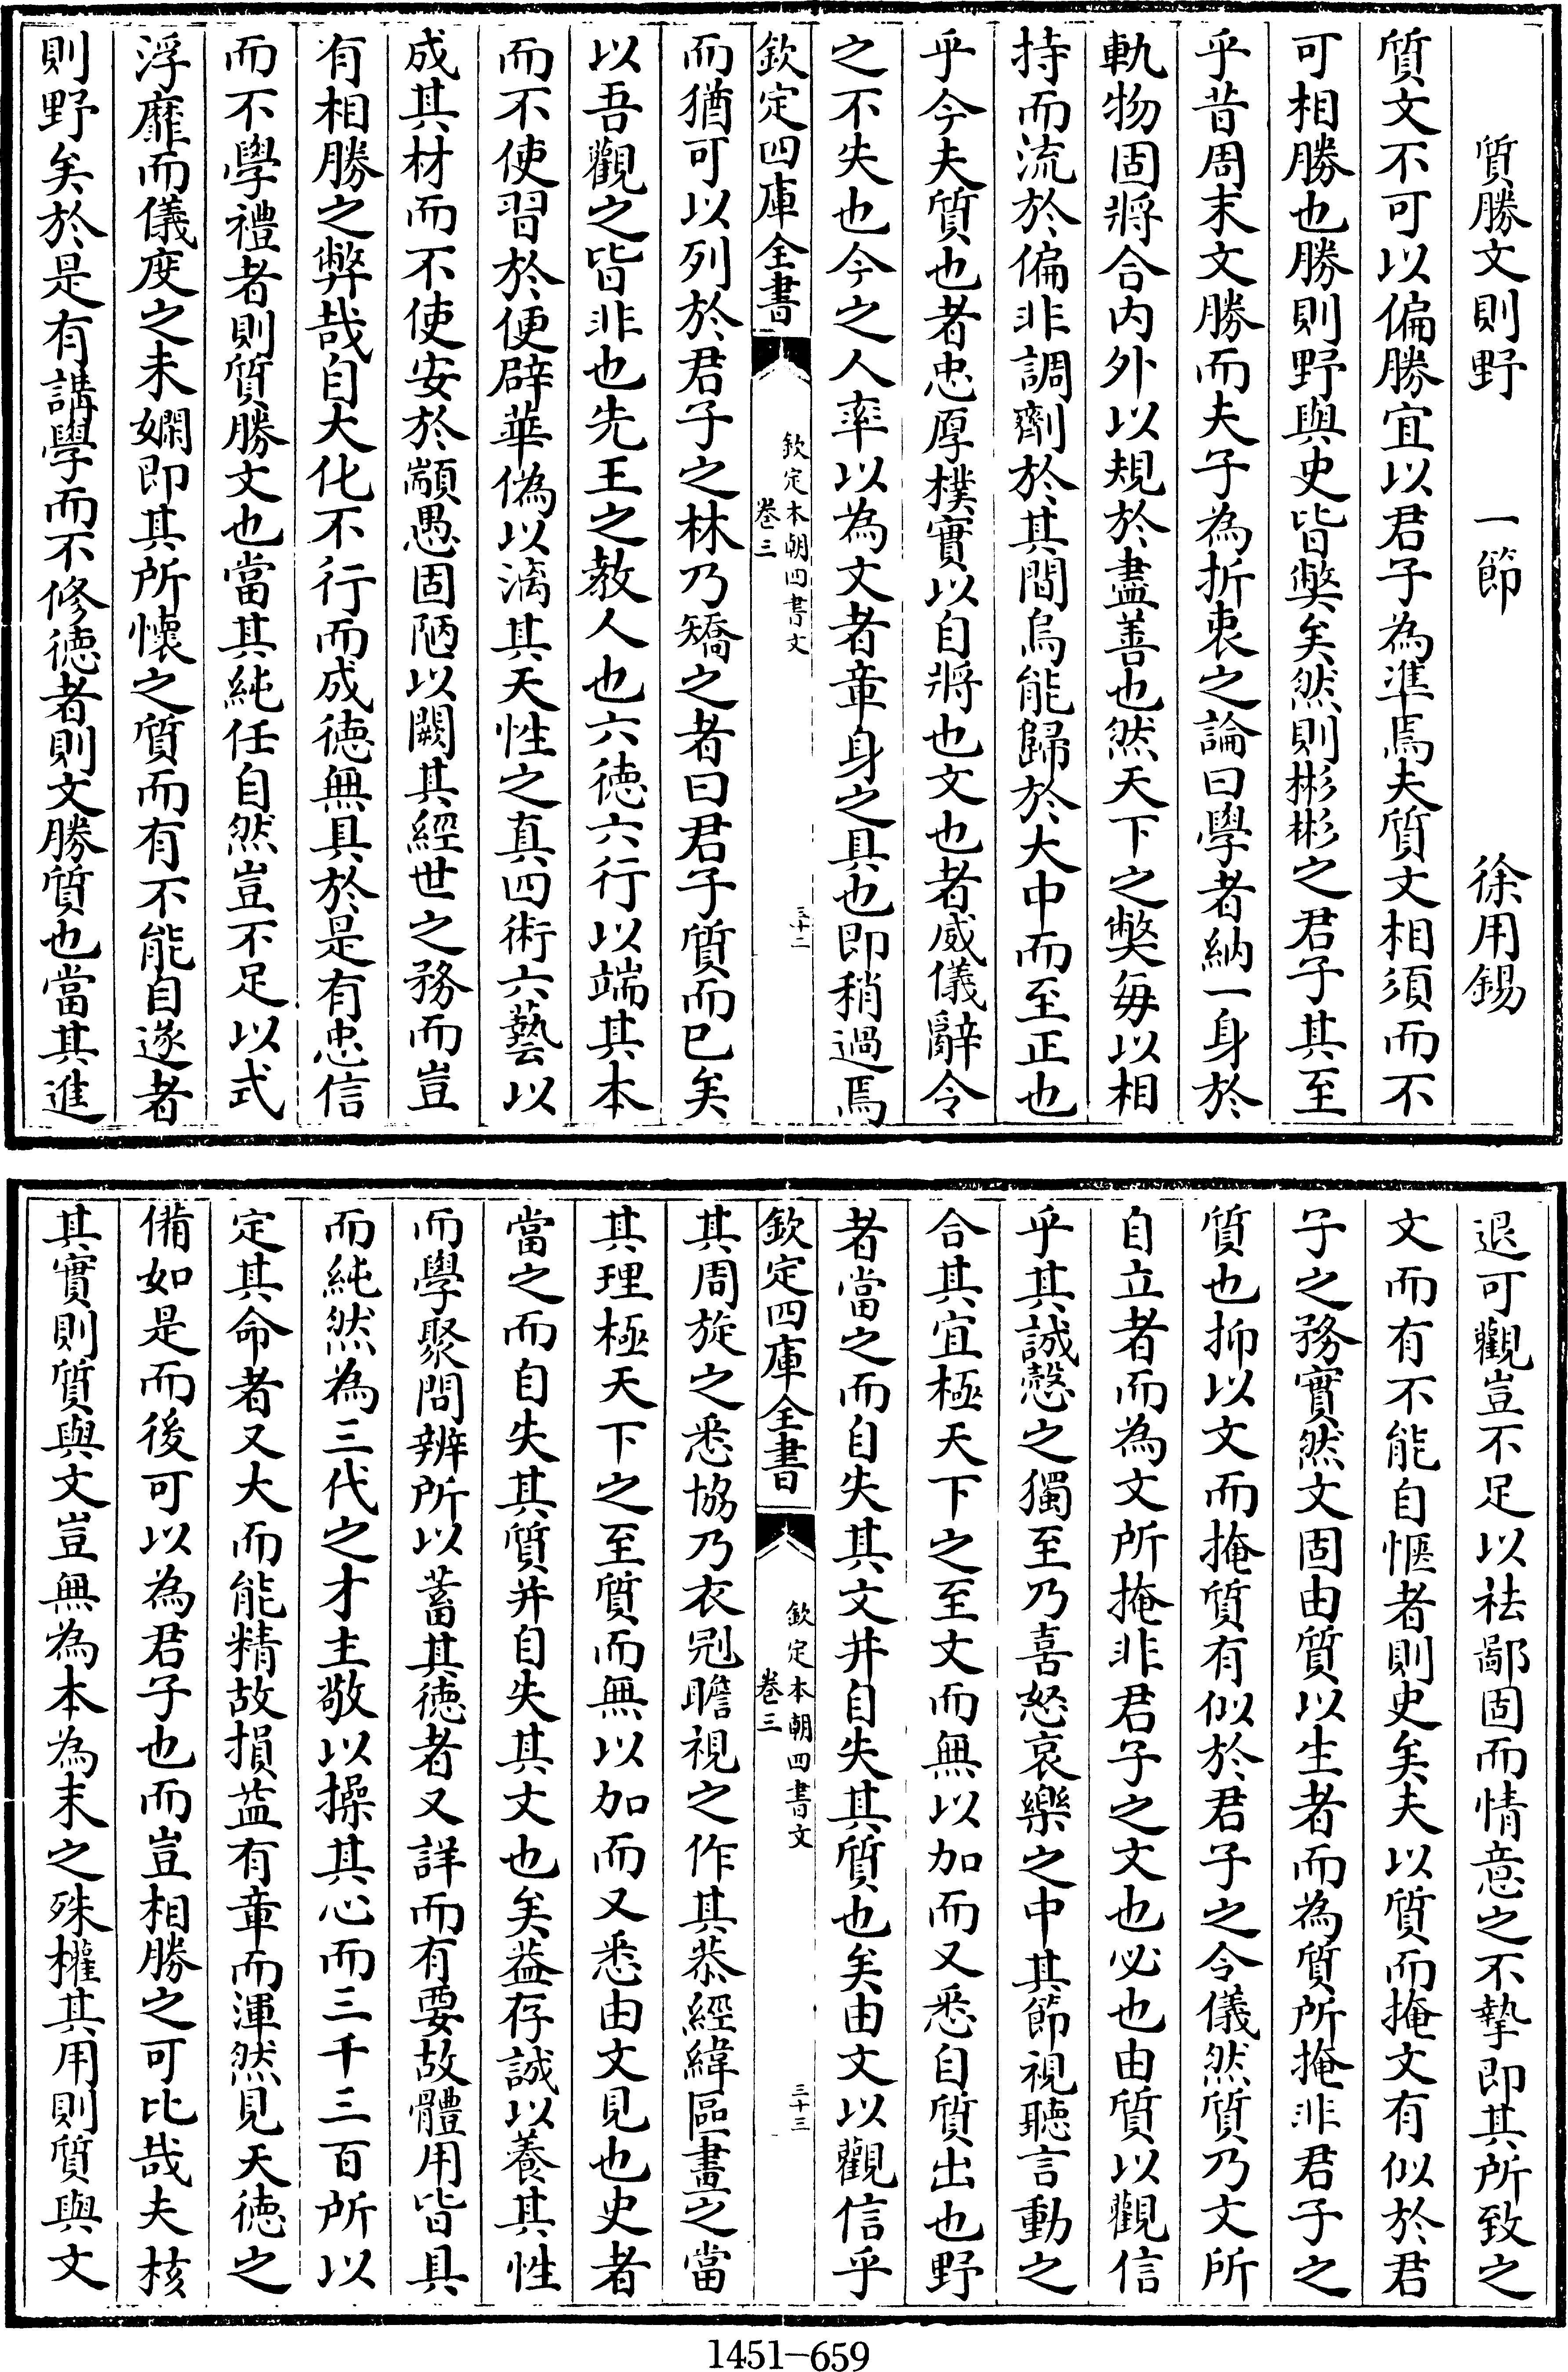 質勝文則野　一節　徐用錫
質文不可以偏勝宜以君子為準焉夫質文相須而不
可相勝也勝則野與史皆獘矣然則彬彬之君子其至
乎昔周末文勝而夫子為折衷之論曰學者納一身於
軌物固將合内外以規於盡善也然天下之獘毎以相
持而流於偏非調劑於其間烏能歸於大中而至正也
乎今夫質也者忠厚樸實以自將也文也者威儀辭令
之不失也今之人率以為文者章身之具也即稍過焉
欽定四庫全書
欽定本朝四書文
卷三
三十二
而猶可以列於君子之林乃矯之者曰君子質而已矣
以吾觀之皆非也先王之教人也六徳六行以端其本
而不使習於便辟華偽以漓其天性之真四術六藝以
成其材而不使安於顓愚固陋以闕其經世之務而豈
有相勝之弊哉自大化不行而成徳無具於是有忠信
而不學禮者則質勝文也當其純任自然豈不足以式
浮靡而儀度之未嫻即其所懐之質而有不能自遂者
則野矣於是有講學而不修徳者則文勝質也當其進
退可觀豈不足以袪鄙固而情意之不摯即其所致之
文而有不能自愜者則史矣夫以質而掩文有似於君
子之務實然文固由質以生者而為質所掩非君子之
質也抑以文而掩質有似於君子之令儀然質乃文所
自立者而為文所掩非君子之文也必也由質以觀信
乎其誠慤之獨至乃喜怒哀樂之中其節視聽言動之
合其宜極天下之至文而無以加而又悉自質出也野
者當之而自失其文并自失其質也矣由文以觀信乎
欽定四庫全書
欽定本朝四書文
卷三
三十三
其周旋之悉協乃衣冠瞻視之作其恭經緯區畫之當
其理極天下之至質而無以加而又悉由文見也史者
當之而自失其質并自失其文也矣益存誠以養其性
而學聚問辨所以蓄其徳者又詳而有要故體用皆具
而純然為三代之才主敬以操其心而三千三百所以
定其命者又大而能精故損益有章而渾然見天徳之
備如是而後可以為君子也而豈相勝之可比哉夫核
其實則質與文豈無為本為末之殊權其用則質與文
1451-659